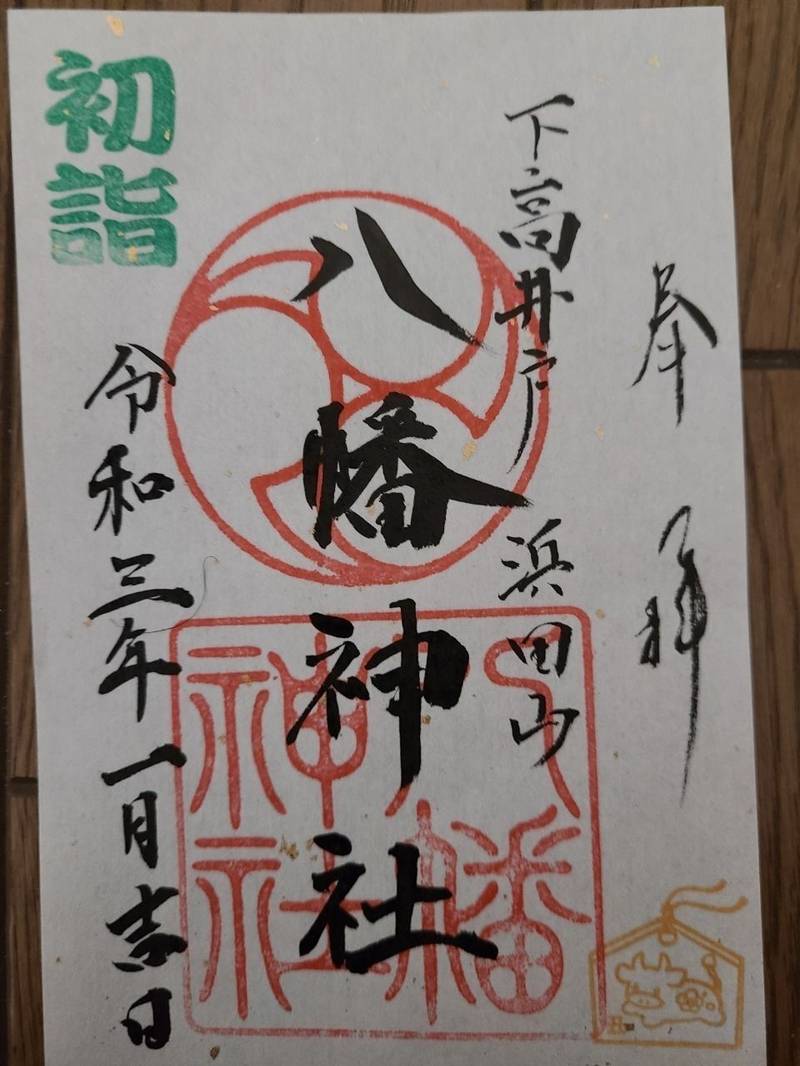 奉拝
下高井戸 浜田山
八幡神社
八幡神社
令和三年一月吉日
初詣
丑